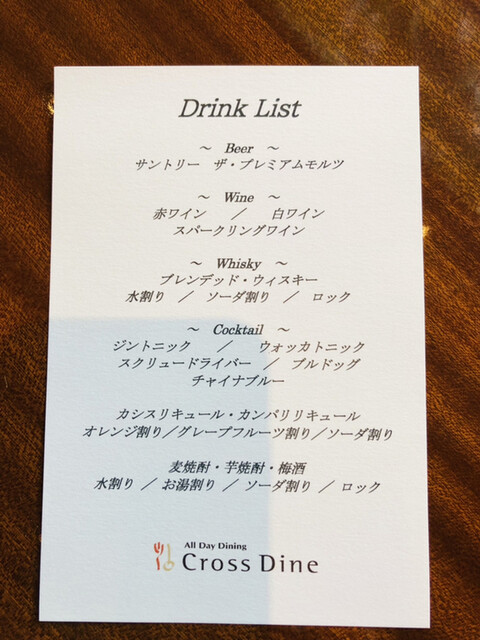 Drink List
～ Beer ～
サントリー ザ・プレミアムモルツ
～ Wine ～
赤ワイン ／ 白ワイン
スパークリングワイン
～ Whisky ～
ブレンデッド・ウィスキー
水割り ／ ソーダ割り ／ ロック
～ Cocktail ～
ジントニック ／ ウォッカトニック
スクリュードライバー ／ ブルドッグ
チャイナブルー
カシスリキュール・カンパリリキュール
オレンジ割り／グレープフルーツ割り／ソーダ割り
麦焼酎・芋焼酎・梅酒
水割り ／ お湯割り ／ ソーダ割り ／ ロック
All Day Dining
Cross Dine